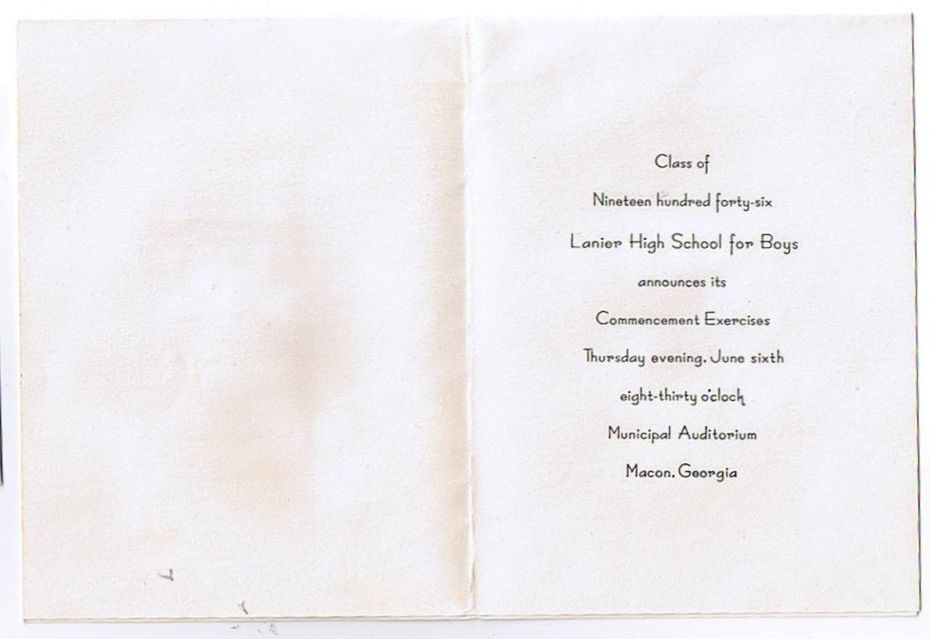 Class of
Nineteen hundred forty-six
Lanier High School for Boys
announces its
Commencement Exercises
Thursday evening, June sixth
eight-thirty o'clock
Municipal Auditorium
Macon, Georgia